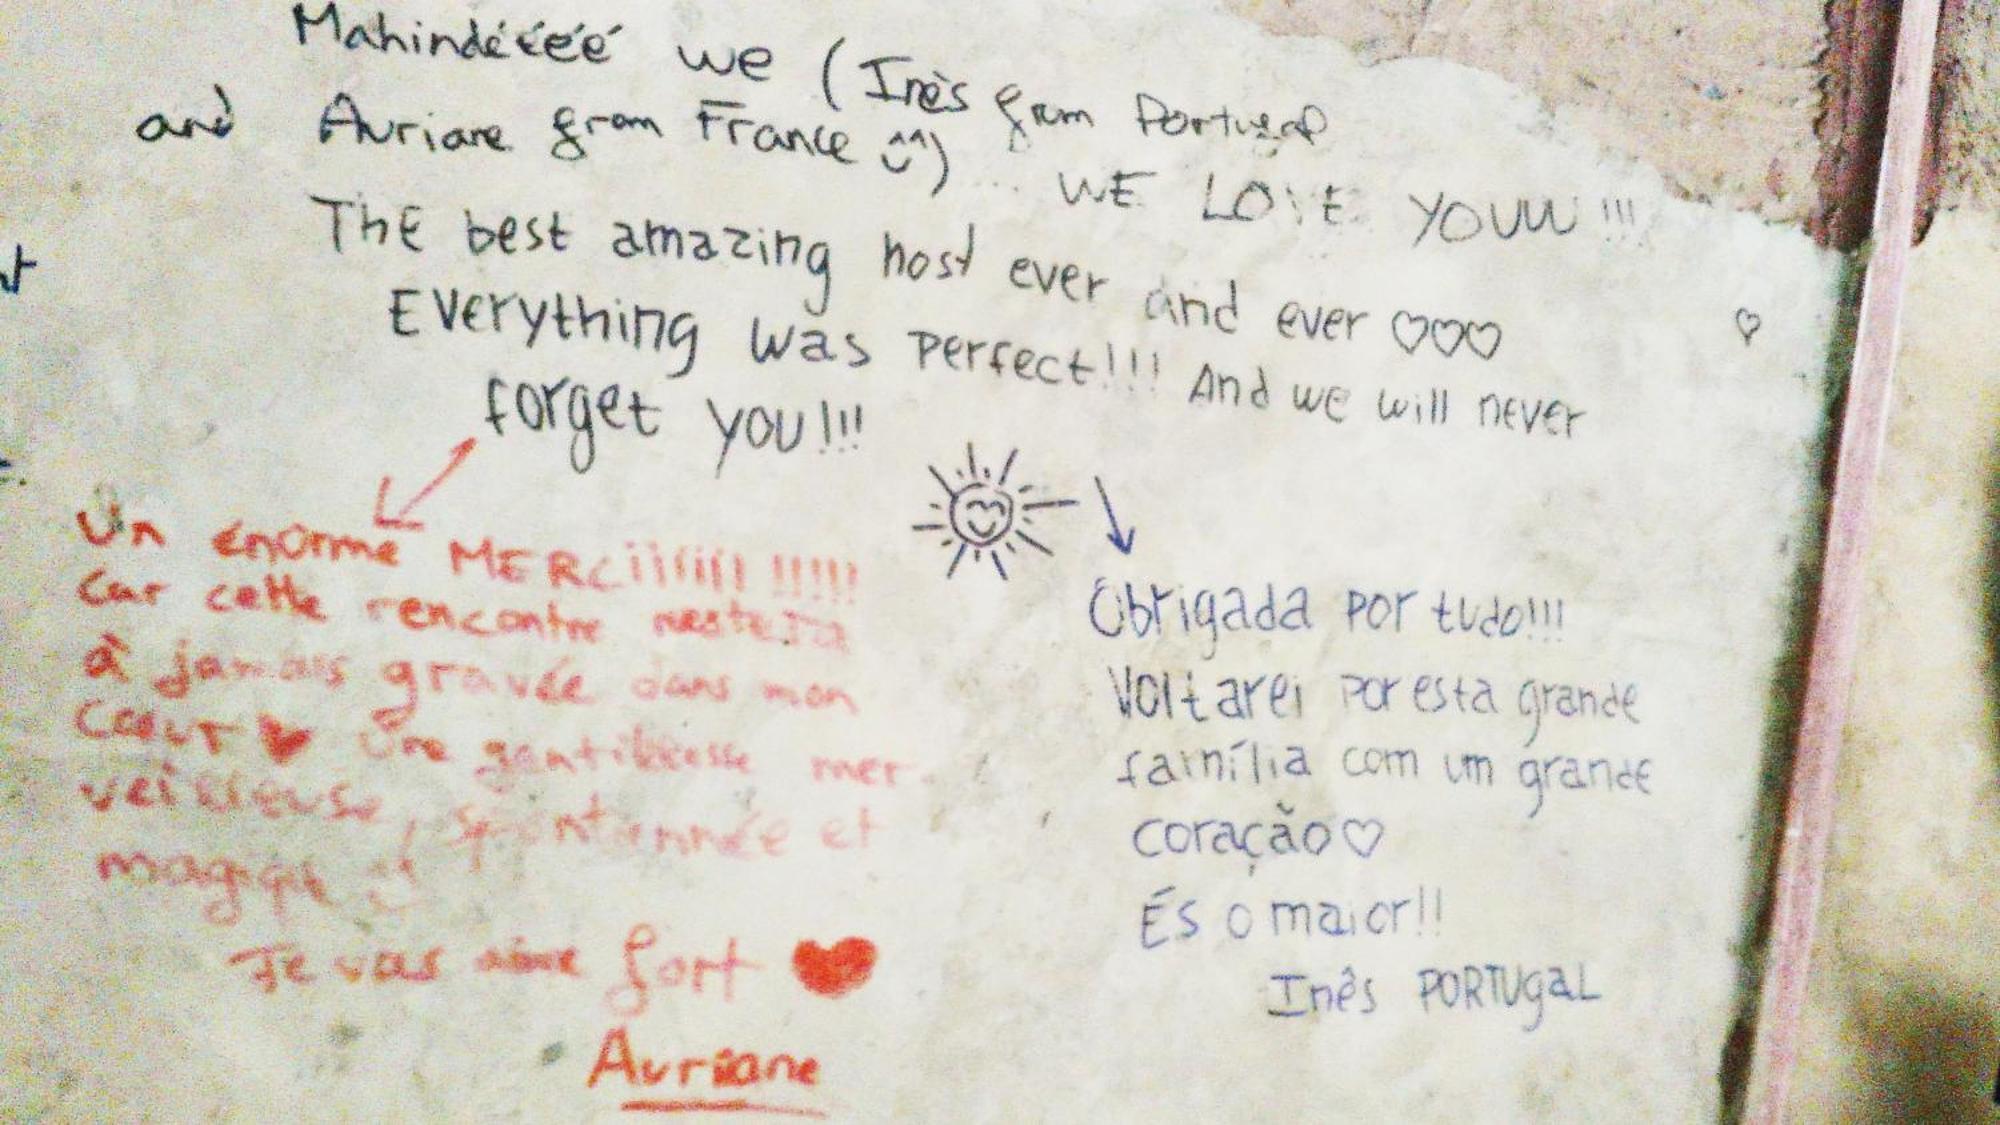 Mahindéééé we (Inès from Portugal
and Auriane from France ^^)
WE LOVE YOUUU !!!
ThE best amazing host ever and ever ♡♡♡
♡
EVerything was perfect!!! And we will never
forget you!!!
Un énorme MERCiiiiii! !!!!!
Car cette rencontre restera
à jamais gravée dans mon
Cœur ♥ Une gentillesse mer-
veilleuse, spontannée et
magique
Je vous aime fort ♥
Auriane
Obrigada por tudo!!!
Voltarei por esta grande
família com um grande
coração♡
És o maior!!
Inês PORTUgaL